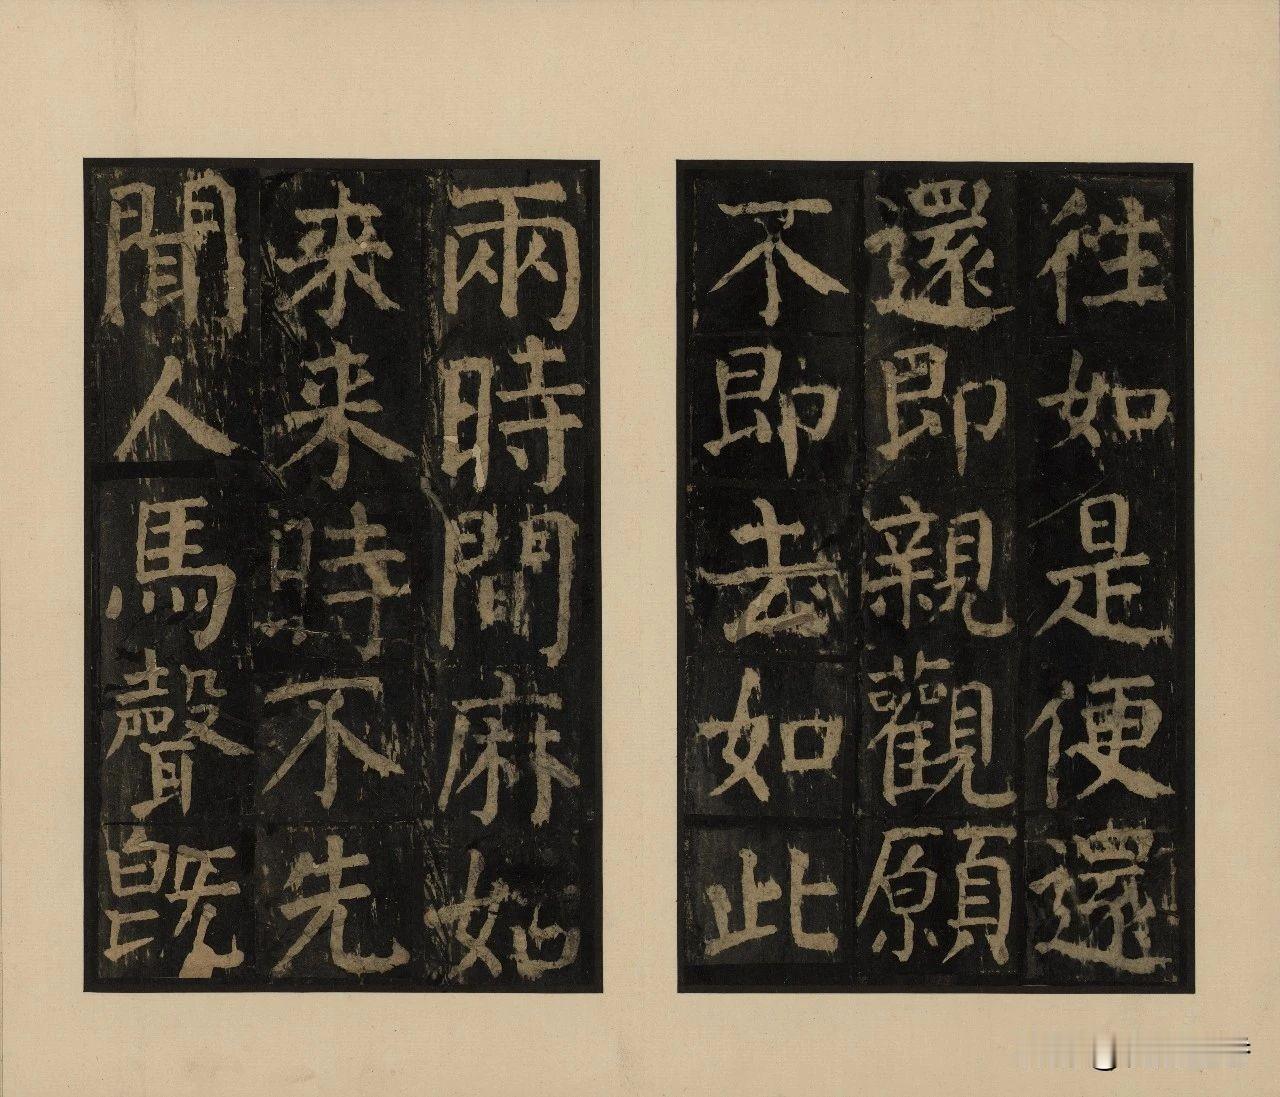 往如是便還
還即親觀願
不即去如此
兩時間麻如
来来時不先
聞人馬聲既